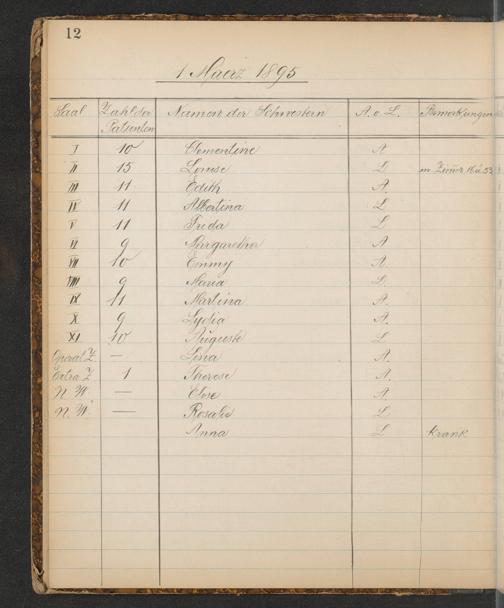 12
1 Maerz 1895
Saal Zahl der Patienten Namen der Schwestern A. o. L. Bemerkungen
I 10 Clementine A
II 15 Louise L m Zimer 16 u 53
III 11 Edith A.
IV 11 Albertina L
V 11 Frida L
VI 9 Margaretha A
VII 10 Emmy A.
VIII 9 Maria L.
IX 11 Martina A.
X 9 Lydia A.
XI 10 Auguste L
Operat Z — Lina A.
Extra Z 1 Therese A.
N. W. — Else A.
N. W. — Rosalie L
Anna L Krank